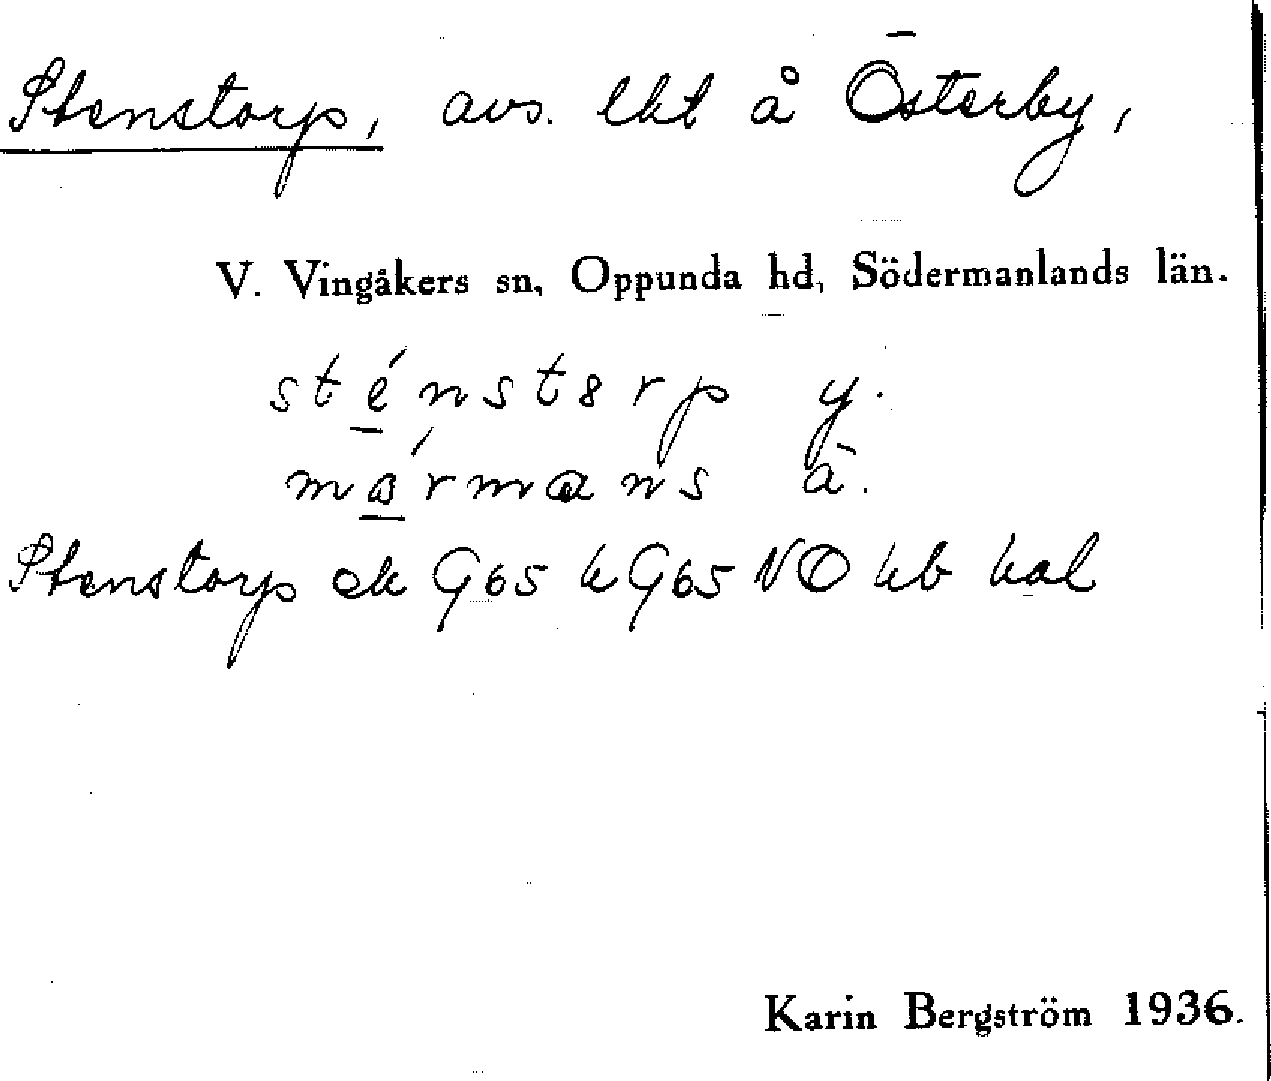 Stenstorp, avs. lht å Österby,
V. Vingåkers sn, Oppunda hd, Södermanlands län.
sténstɵrp y.
mármans ä.
Stenstorp ek G65 h G65 NO hb hal
Karin Bergström 1936.